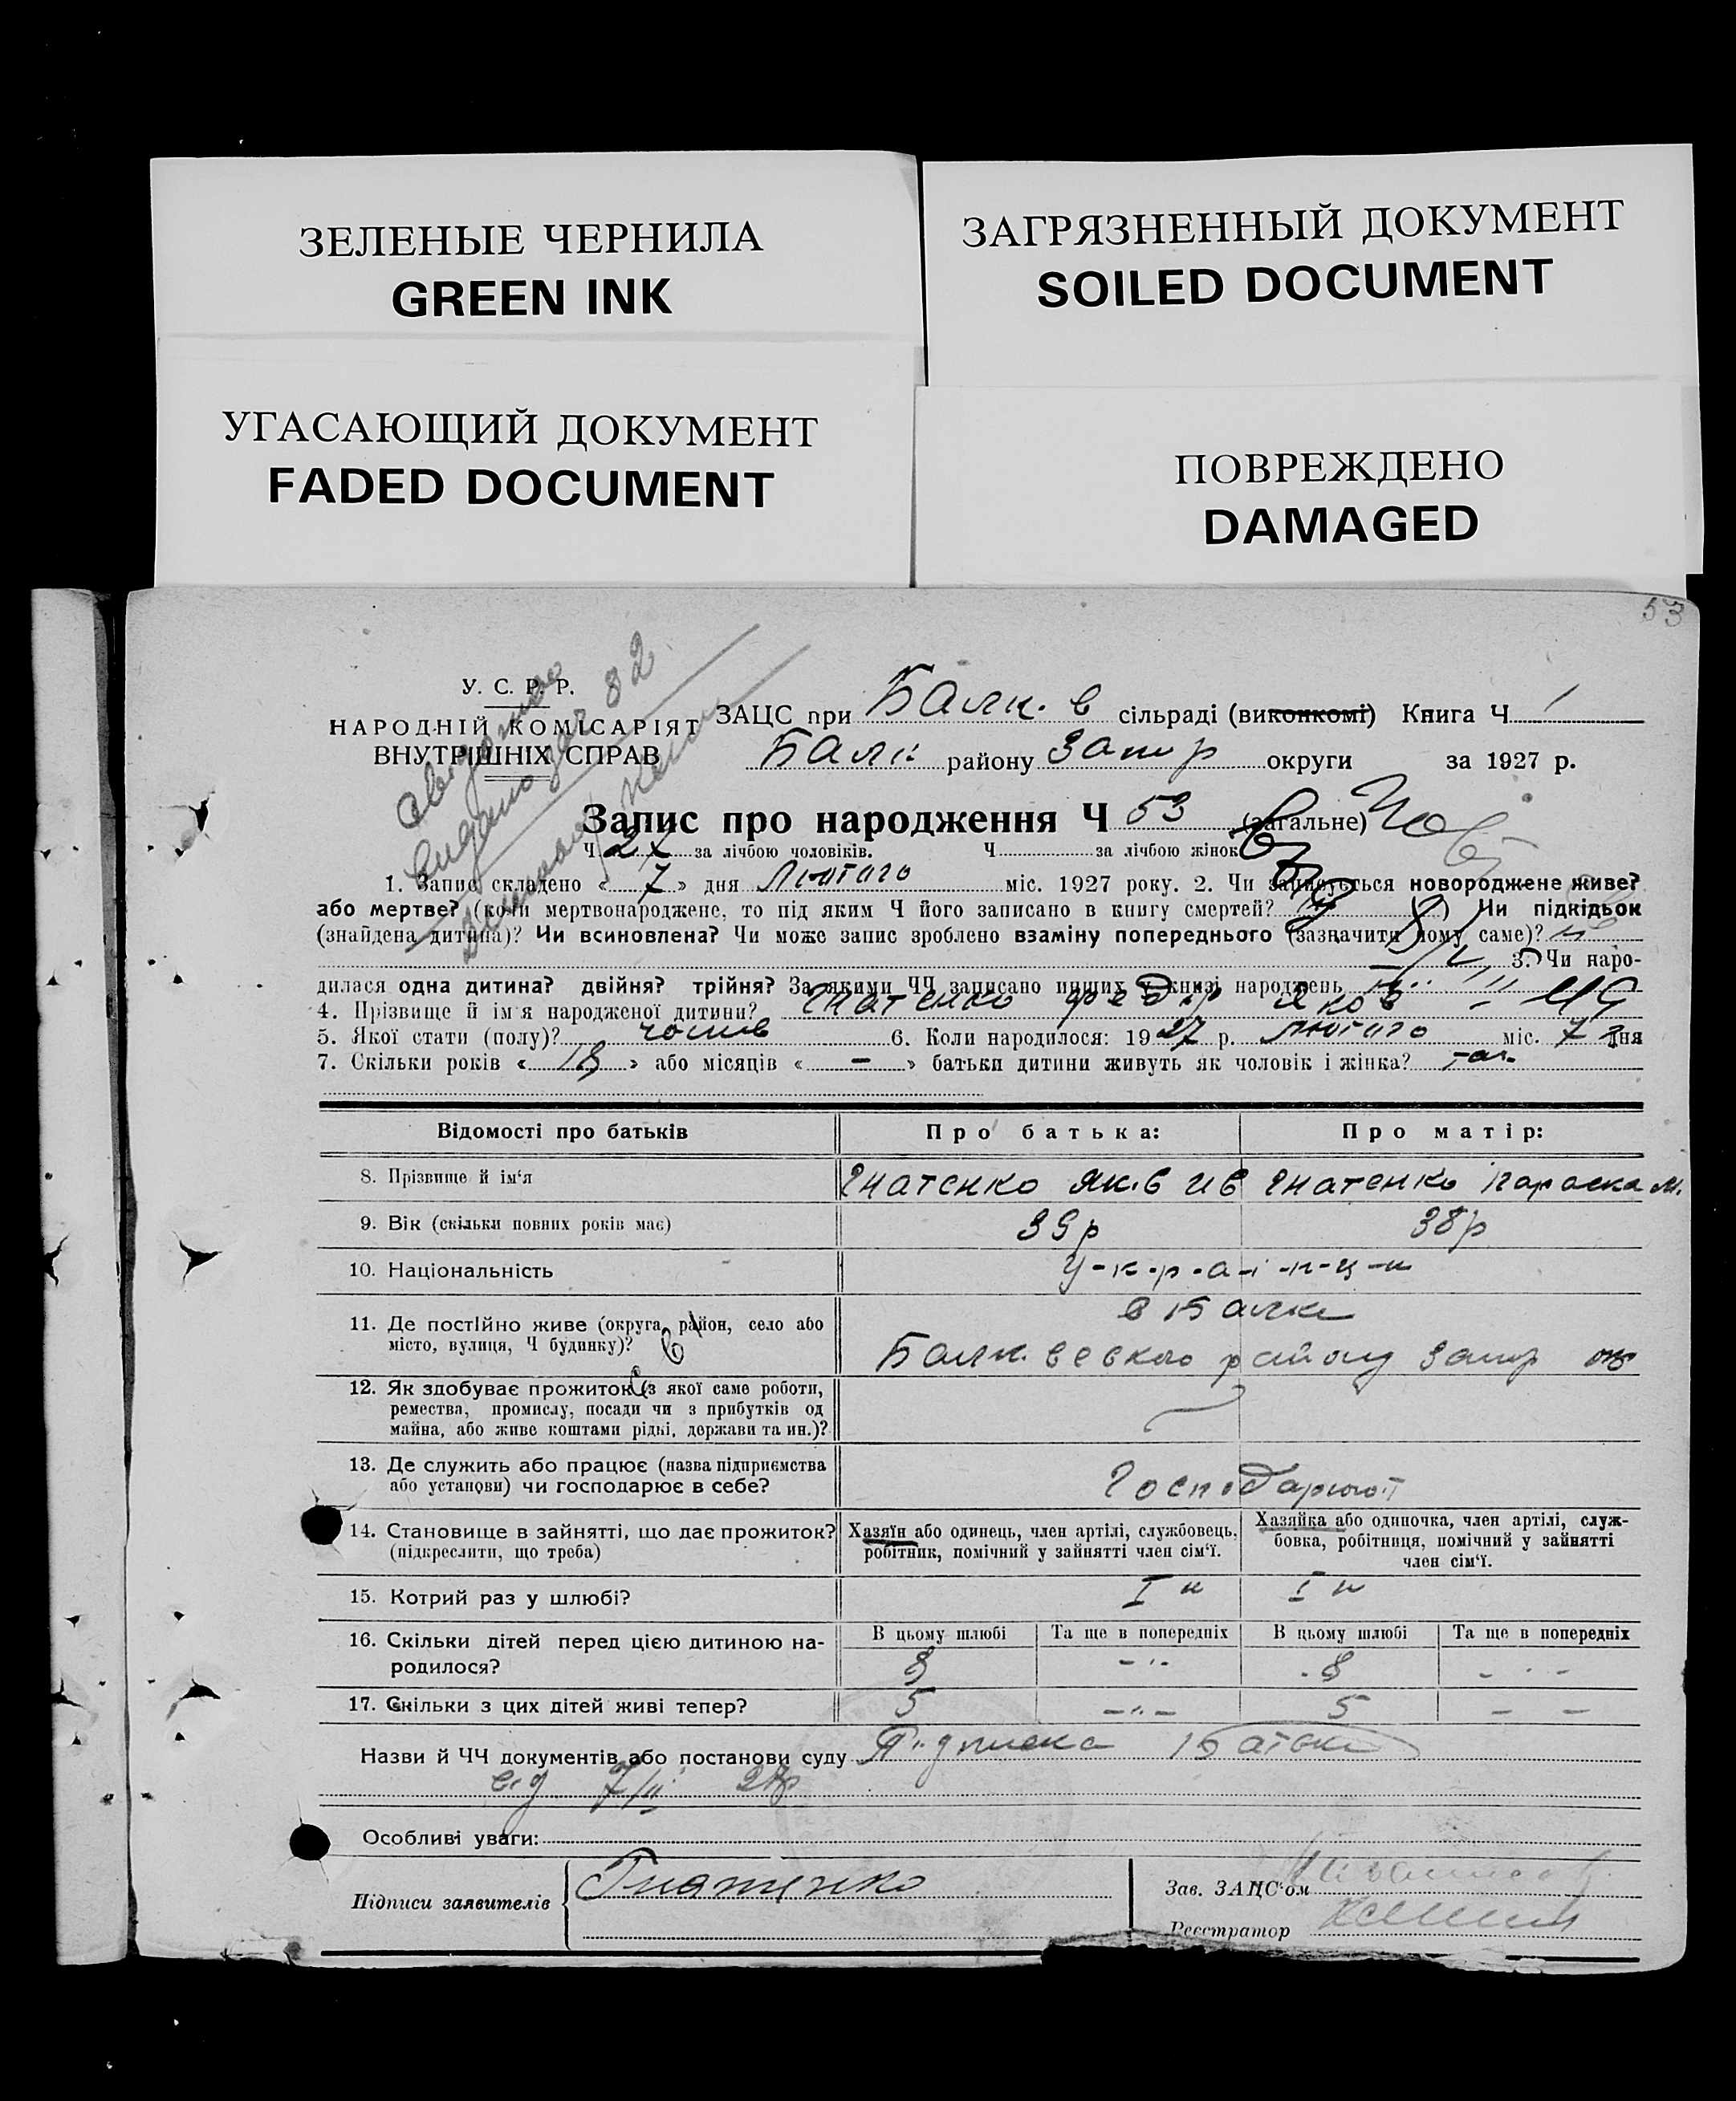 ЗЕЛЕНЫЕ ЧЕРНИЛА
GREEN INK
ЗАГРЯЗНЕННЫЙ ДОКУМЕНТ
SOILED DOCUMENT
УГАСАЮЩИЙ ДОКУМЕНТ
FADED DOCUMENT
ПОВРЕЖДЕНО
DAMAGED
53
У. С. Р. Р.
НАРОДНІЙ КОМІСАРІЯТ
ВНУТРІШНІХ СПРАВ
82
ЗАЦС при Балк. в сільраді (виконкомі) Книга Ч 1
Балк. району Запор округи за 1927 р.
Запис про народження Ч 53 (загальне)
Ч за лічбою чоловіків. Ч за лічбою жінок
1. Запис складено « 7 » дня Лютого міс. 1927 року. 2. Чи записується новороджене живе?
або мертве? (коли мертвонароджене, то під яким Ч його записано в книгу смертей? ) Чи підкідьок
(знайдена дитина)? Чи всиновлена? Чи може запис зроблено взаміну попереднього (зазначити чому саме)?
3. Чи наро-
дилася одна дитина? двійня? трійня? За якими ЧЧ записано инших у книзі народжень
4. Прізвище й ім'я народженої дитини? Гнатенко Федір Яков
5. Якої стати (полу)? чолов 6. Коли народилося: 1927 р. лютого міс. 7 дня
7. Скільки років « 18 » або місяців « – » батьки дитини живуть як чоловік і жінка? так
Відомості про батьків
Про батька:
Про матір:
8. Прізвище й ім'я
Гнатенко Як.в Ив
Гнатенко Параска М.
9. Вік (скільки повних років має)
39р
38р
10. Національність
У-к-р-а-ї-н-ц-и
11. Де постійно живе (округа, район, село або
місто, вулиця, Ч будинку)?
в Балки
Балк. вського району Запор ок
12. Як здобуває прожиток (з якої саме роботи,
ремества, промислу, посади чи з прибутків од
майна, або живе коштами рідні, держави та ин.)?
13. Де служить або працює (назва підприємства
або установи) чи господарює в себе?
Господарюют
14. Становище в зайнятті, що дає прожиток?
(підкреслити, що треба)
Хазяїн або одинець, член артілі, службовець,
робітник, помічний у зайнятті член сім'ї.
Хазяйка або одиночка, член артілі, служ-
бовка, робітниця, помічний у зайнятті
член сім'ї.
15. Котрий раз у шлюбі?
I й
I й
16. Скільки дітей перед цією дитиною на-
родилося?
В цьому шлюбі
Та ще в попередніх
В цьому шлюбі
Та ще в попередніх
8
8
17. Скільки з цих дітей живі тепер?
5
5
Назви й ЧЧ документів або постанови суду Підписка Батька
від 7/II 27р
Особливі уваги:
Підписи заявителів
Гнатенко
Зав. ЗАЦС'ом
Реєстратор